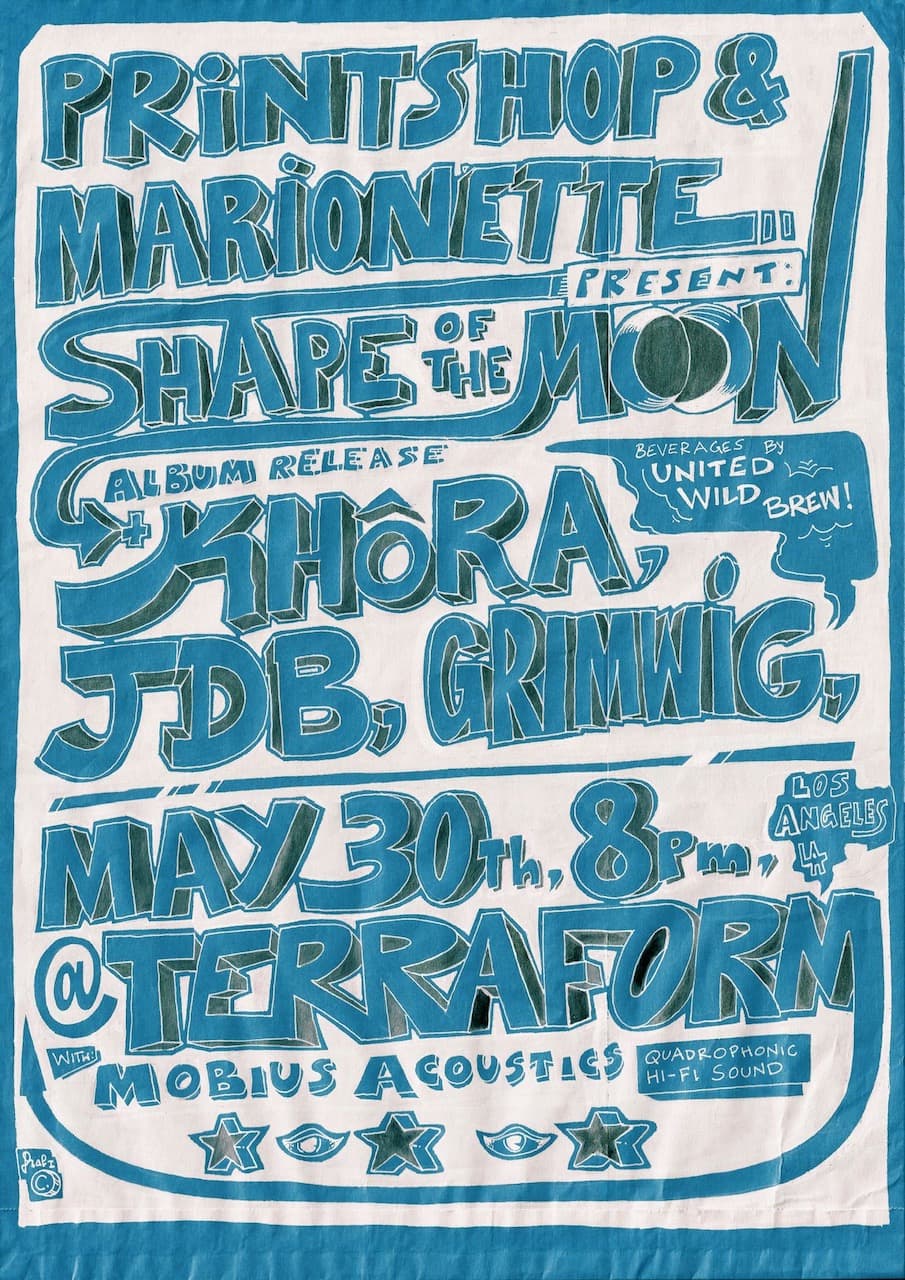 PRiNTSHOP &
MARiONETTE...
PRESENT:
SHAPE OF THE MOON
ALBUM RELEASE
BEVERAGES By
UNITED
WILD BREW!
+ KHÔRA,
JDB, GRIMWiG,
MAY 30Th, 8Pm,
LOS
ANGELES
LA
@TERRAFORM
WITH:
MOBIUS ACOUSTICS
QUADROPHONIC
HI-FI SOUND
C.